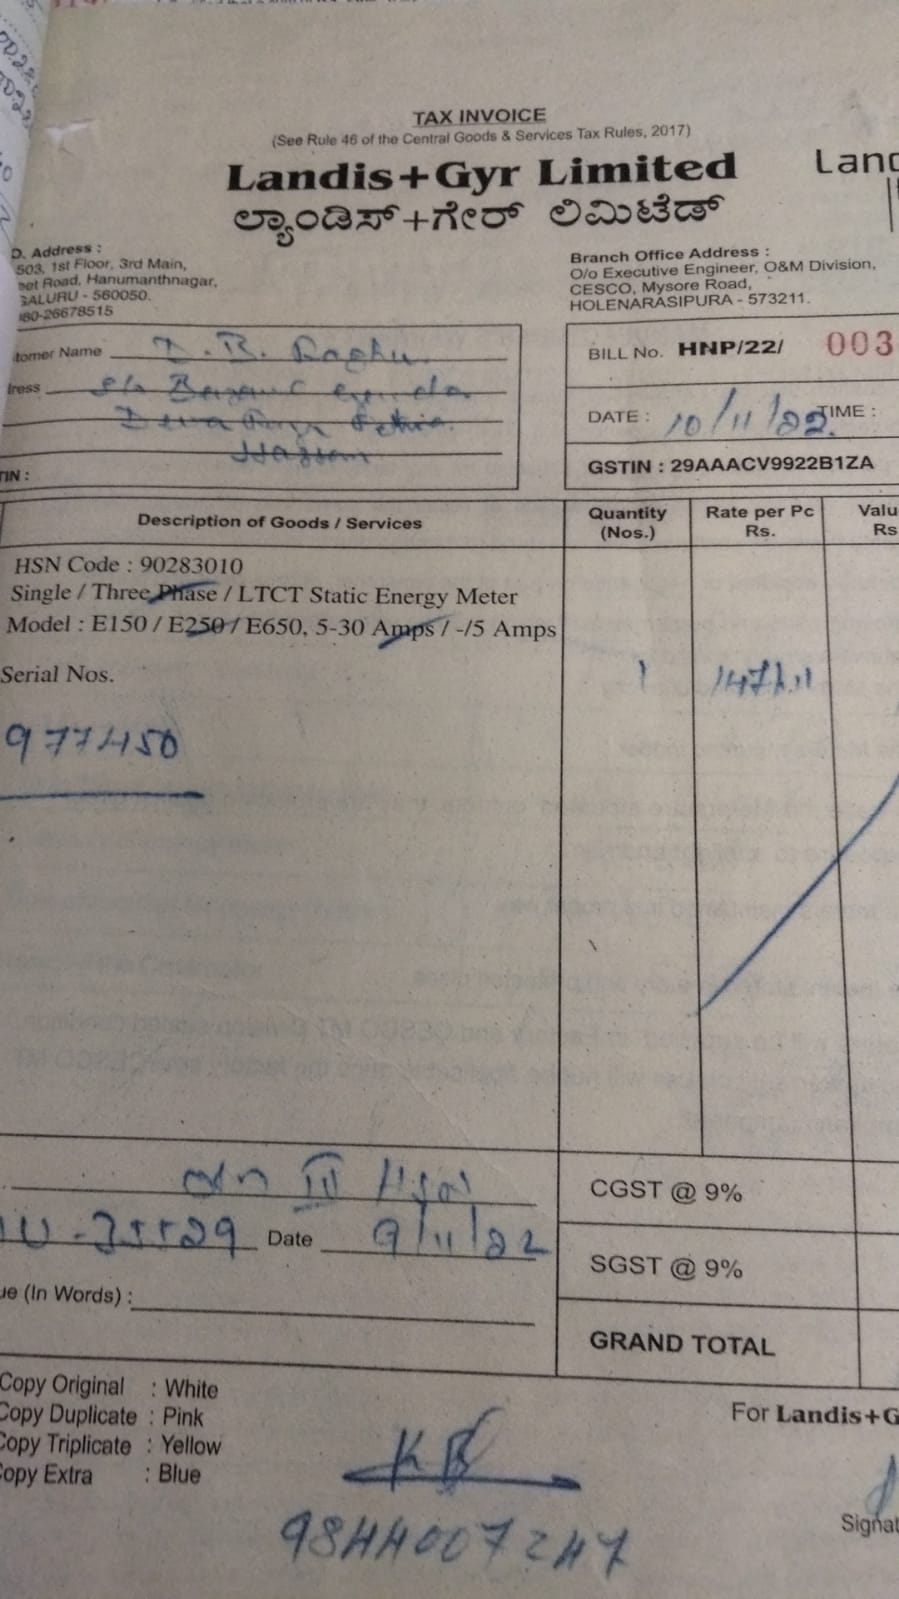 TAX INVOICE
(See Rule 46 of the Central Goods & Services Tax Rules, 2017)
Landis+Gyr Limited
ಲ್ಯಾಂಡಿಸ್+ಗೇರ್ ಲಿಮಿಟೆಡ್
D. Address :
503, 1st Floor, 3rd Main,
Road, Hanumanthnagar,
GALURU - 560050.
080-26678515
Branch Office Address :
O/o Executive Engineer, O&M Division,
CESCO, Mysore Road,
HOLENARASIPURA - 573211.
tomer Name D. B. Raghu
ress
Hassan
TIN :
BILL No. HNP/22/ 003
DATE : 10/11/22 TIME :
GSTIN : 29AAACV9922B1ZA
Description of Goods / Services Quantity (Nos.) Rate per Pc Rs. Valu Rs
HSN Code : 90283010
Single / Three Phase / LTCT Static Energy Meter
Model : E150 / E250 / E650, 5-30 Amps / -/5 Amps
Serial Nos. 1 1471.11
977450
III
CGST @ 9%
Date 9/11/22
SGST @ 9%
ue (In Words) :
GRAND TOTAL
Copy Original : White
Copy Duplicate : Pink
Copy Triplicate : Yellow
Copy Extra : Blue
For Landis+G
9844007247
Signat